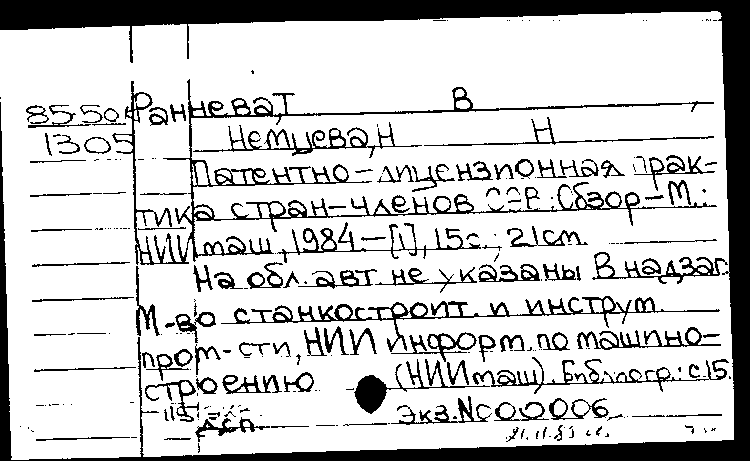 85-50к Раннева,Т В
1305 Немцева,Н Н
Патентно-лицензионная прак-
тика стран-членов СЭВ: Обзор-М.:
НИИмаш, 1984.-[1], 15с.; 21см.
На обл. авт. не указаны В надзаг.
М-во станкостроит. и инструм.
пром-сти, НИИ информ. по машино-
строению (НИИмаш). Библиогр.: с.15.
ДСП. Экз.№000006